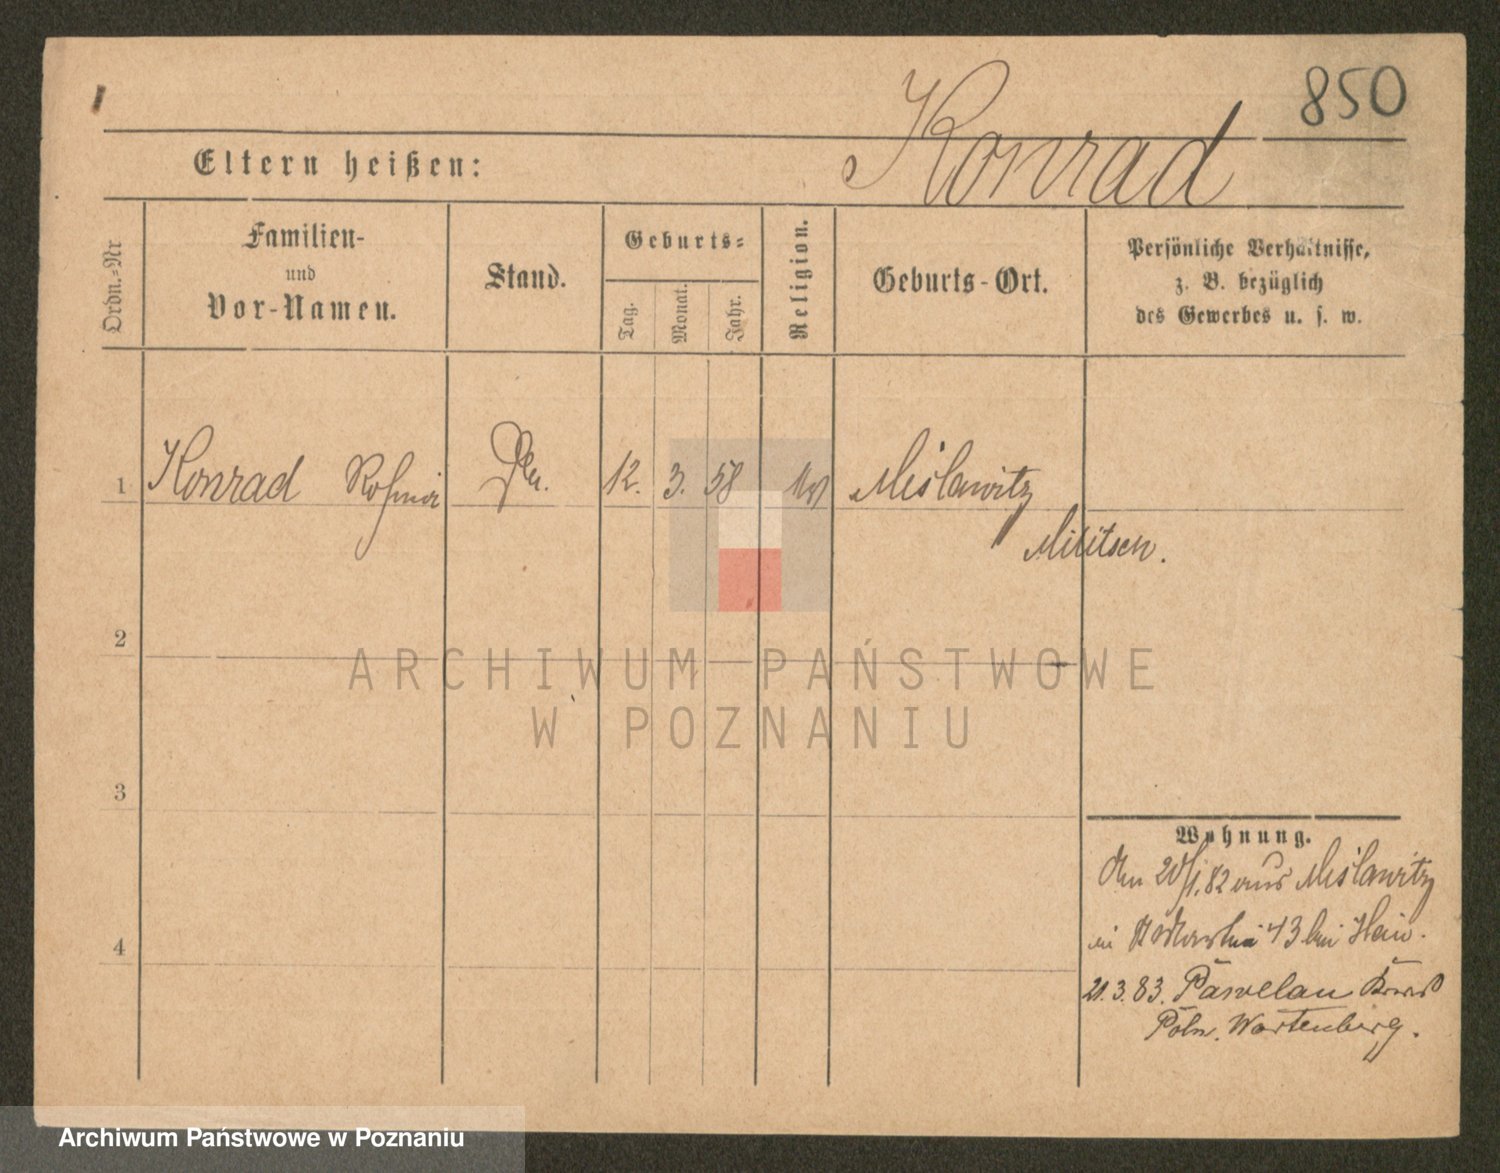 850
Konrad
Eltern heißen:
Ordn.=Nr
Familien-
und
Vor-Namen.
Stand.
Geburts=
Tag.
Monat.
Jahr.
Religion.
Geburts-Ort.
Persönliche Verhältnisse,
z. B. bezüglich
des Gewerbes u. s. w.
1 Konrad 12. 3. 58 Mislawitz
Militsch.
2
3
4
ARCHIWUM PAŃSTWOWE
W POZNANIU
Wohnung.
20/1.82 aus Mislawitz
43 bei
21.3.83. Kreis
Poln. Wartenberg.
Archiwum Państwowe w Poznaniu